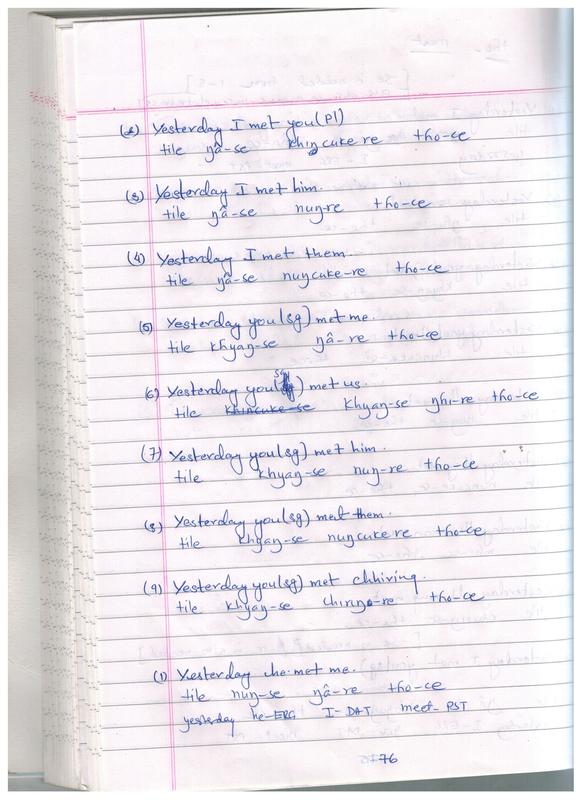 (2) Yesterday I met you(pl)
tile ŋâ-se khincuke re tho-ce
(3) Yesterday I met him.
tile ŋâ-se nuŋ-re tho-ce
(4) Yesterday I met them.
tile ŋâ-se nuŋcuke-re tho-ce
(5) Yesterday you(sg) met me.
tile khyaŋ-se ŋâ-re tho-ce
(6) Yesterday you(sg) met us.
tile khincuke-se khyaŋ-se ŋhi-re tho-ce
(7) Yesterday you(sg) met him.
tile khyaŋ-se nuŋ-re tho-ce
(8) Yesterday you(sg) met them.
tile khyaŋ-se nuŋcuke re tho-ce
(9) Yesterday you(sg) met chhiring.
tile khyaŋ-se tho-ce
(1) Yesterday he met me.
tile nuŋ-se ŋâ-re tho-ce
yesterday he-ERG I-DAT meet-PST
76